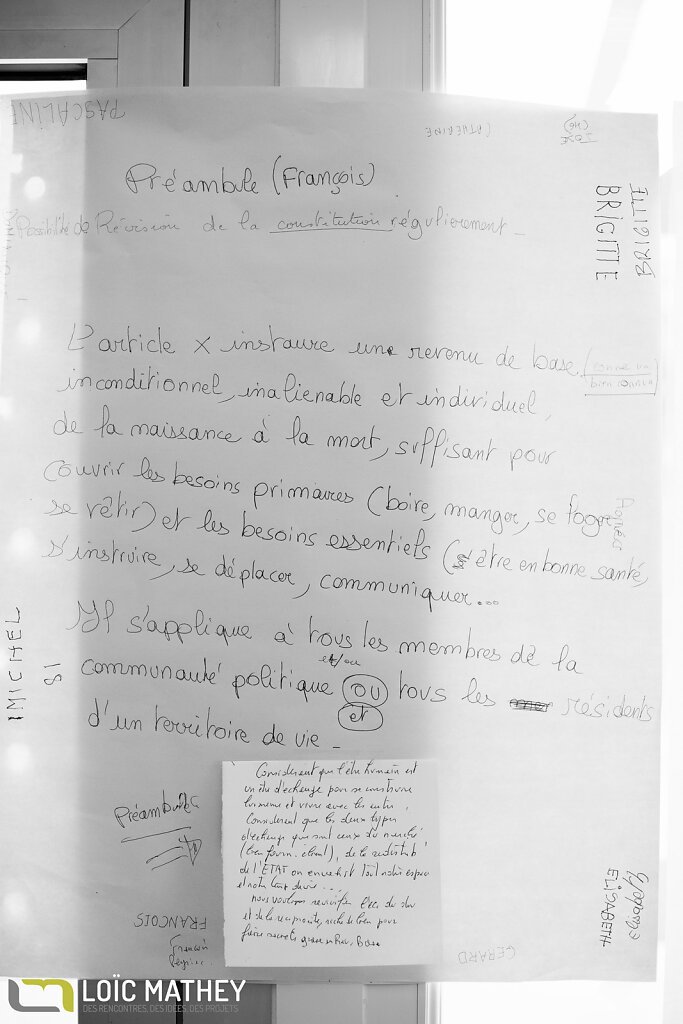 PASCALINE
CATHERINE
JOSÉ
Préambule (François)
Possibilité de Révision de la constitution régulièrement -
BRIGITTE
BRIGITTE
L'article x instaure un revenu de base (comme un
bien commun)
inconditionnel, inalienable et individuel,
de la naissance à la mort, suffisant pour
couvrir les besoins primaires (boire, manger, se loger,
se vêtir) et les besoins essentiels (être en bonne santé,
s'instruire, se déplacer, communiquer...
Agnès
Il s'applique à tous les membres de la
et/ou
communauté politique ou tous les résidents
et
d'un territoire de vie -
MICHEL
SI
Préambule
Considerant que l'être humain est
un être d'échange pour se construire
lui même et vivre avec les autres,
Considerant que les deux types
d'échange que sont ceux du marché
de l'ETAT ont envahit tout notre espace
et notre temps de vie...
nous voulons revivifier celui du don
et de la réciprocité
Base
FRANCOIS
François
GERARD
ELISABETH
LOÏC MATHEY
DES RENCONTRES, DES IDÉES, DES PROJETS